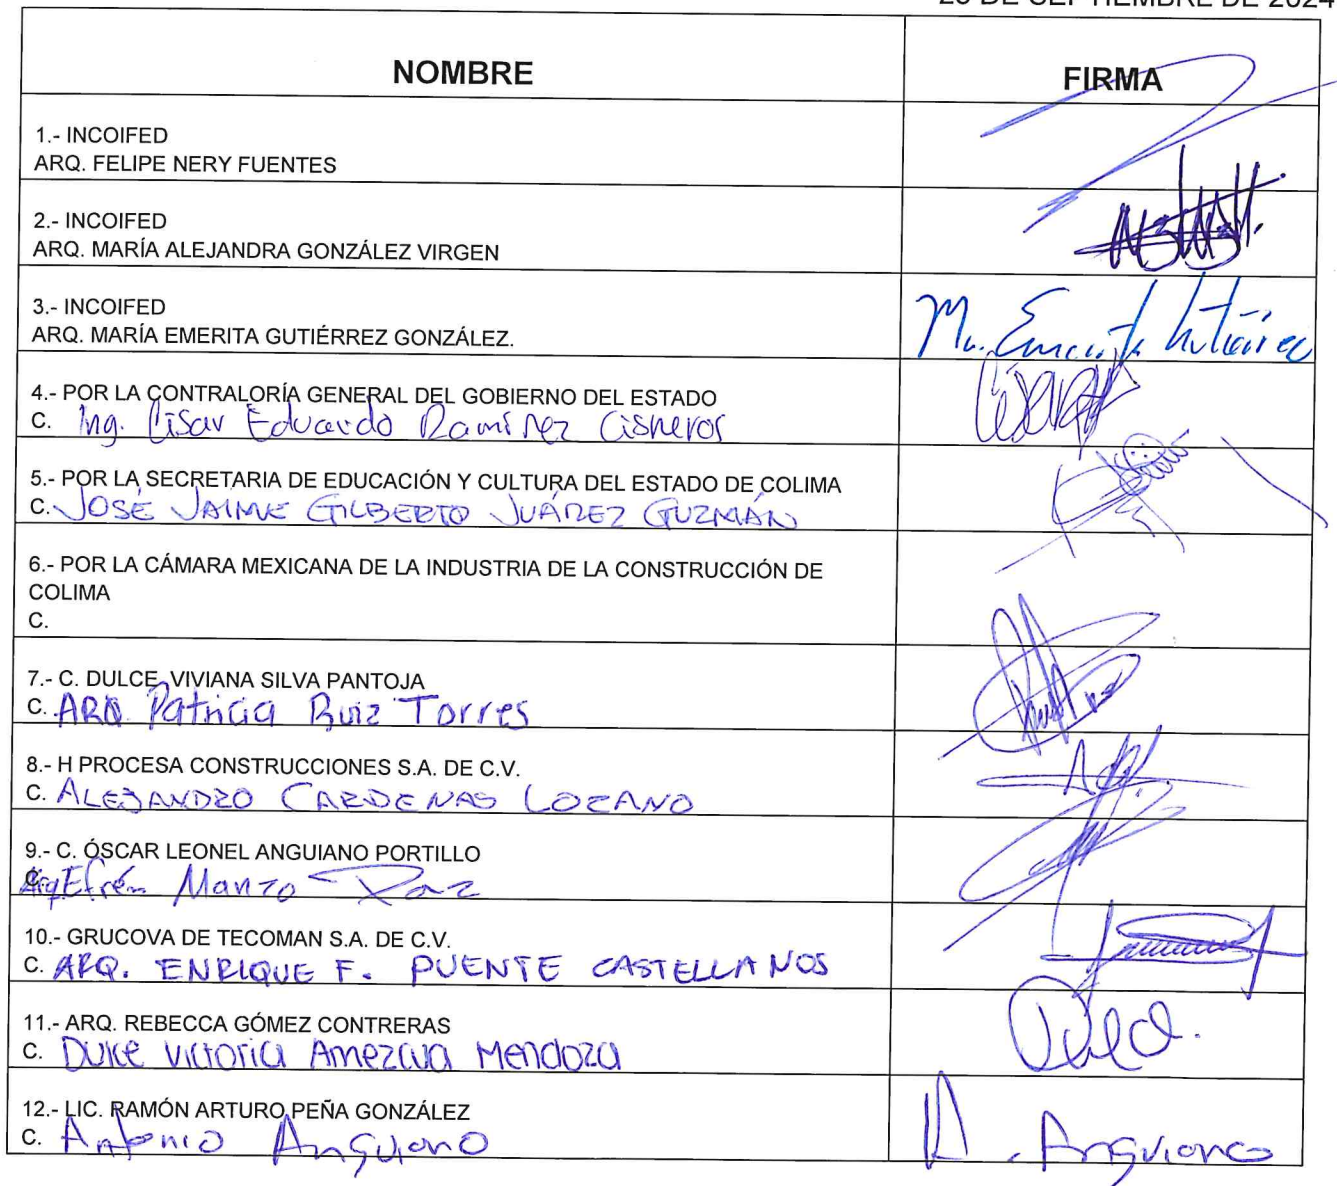 DE SEPTIEMBRE DE 2024
NOMBRE FIRMA
1.- INCOIFED
ARQ. FELIPE NERY FUENTES
2.- INCOIFED
ARQ. MARÍA ALEJANDRA GONZÁLEZ VIRGEN
3.- INCOIFED
ARQ. MARÍA EMERITA GUTIÉRREZ GONZÁLEZ.
Ma. Emerita Gutiérrez
4.- POR LA CONTRALORÍA GENERAL DEL GOBIERNO DEL ESTADO
C. Ing. César Eduardo Ramírez Cisneros
5.- POR LA SECRETARIA DE EDUCACIÓN Y CULTURA DEL ESTADO DE COLIMA
C. JOSÉ JAIME GILBERTO JUÁREZ GUZMÁN
6.- POR LA CÁMARA MEXICANA DE LA INDUSTRIA DE LA CONSTRUCCIÓN DE
COLIMA
C.
7.- C. DULCE VIVIANA SILVA PANTOJA
C. ARQ. Patricia Ruiz Torres
8.- H PROCESA CONSTRUCCIONES S.A. DE C.V.
C. ALEJANDRO CARDENAS LOZANO
9.- C. ÓSCAR LEONEL ANGUIANO PORTILLO
C. Arq Efrén Manzo Paz
10.- GRUCOVA DE TECOMAN S.A. DE C.V.
C. ARQ. ENRIQUE F. PUENTE CASTELLANOS
11.- ARQ. REBECCA GÓMEZ CONTRERAS
C. Dulce Victoria Amezcua Mendoza
Dulce.
12.- LIC. RAMÓN ARTURO PEÑA GONZÁLEZ
C. Antonio Anguiano
A. Anguiano